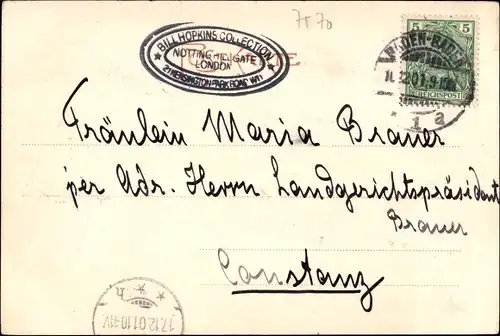 7570
BILL HOPKINS COLLECTION
NOTTING HILL GATE
LONDON
21 KENSINGTON PARK ROAD W11
5 5
REICHSPOST
BADEN-BADEN
1 a
Fräulein Maria Brauer
per Adr. Herrn Landgerichtspräsident
Brauer
Constanz
17.12.01.10-11V